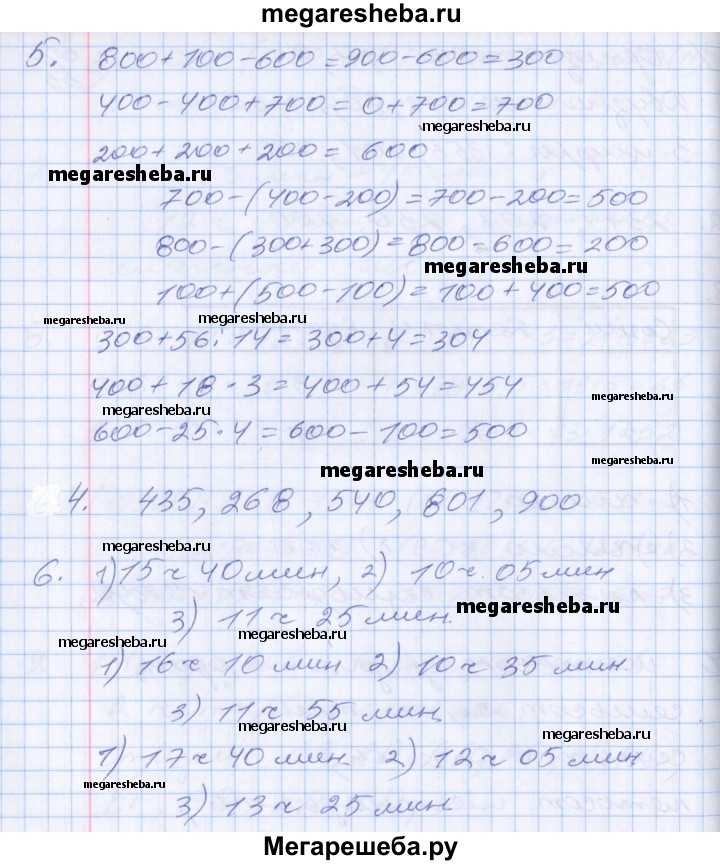 megaresheba.ru
5. 800+100-600=900-600=300
400-400+700=0+700=700
megaresheba.ru
200+200+200= 600
megaresheba.ru
700-(400-200)=700-200=500
800-(300+300)=800-600=200
megaresheba.ru
100+(500-100)=100+400=500
megaresheba.ru megaresheba.ru
300+56:14=300+4=304
400+18·3=400+54=454
megaresheba.ru megaresheba.ru
600-25·4=600-100=500
megaresheba.ru
4. 435, 268, 540, 801, 900
megaresheba.ru
6. 1) 15ч 40мин, 2) 10ч. 05мин
megaresheba.ru
3) 11ч 25мин.
megaresheba.ru
1) 16ч 10мин 2) 10ч 35мин.
3) 11ч 55мин
megaresheba.ru
1) 17ч 40мин. 2) 12ч 05мин
megaresheba.ru
3) 13ч 25мин
Мегарешеба.ру